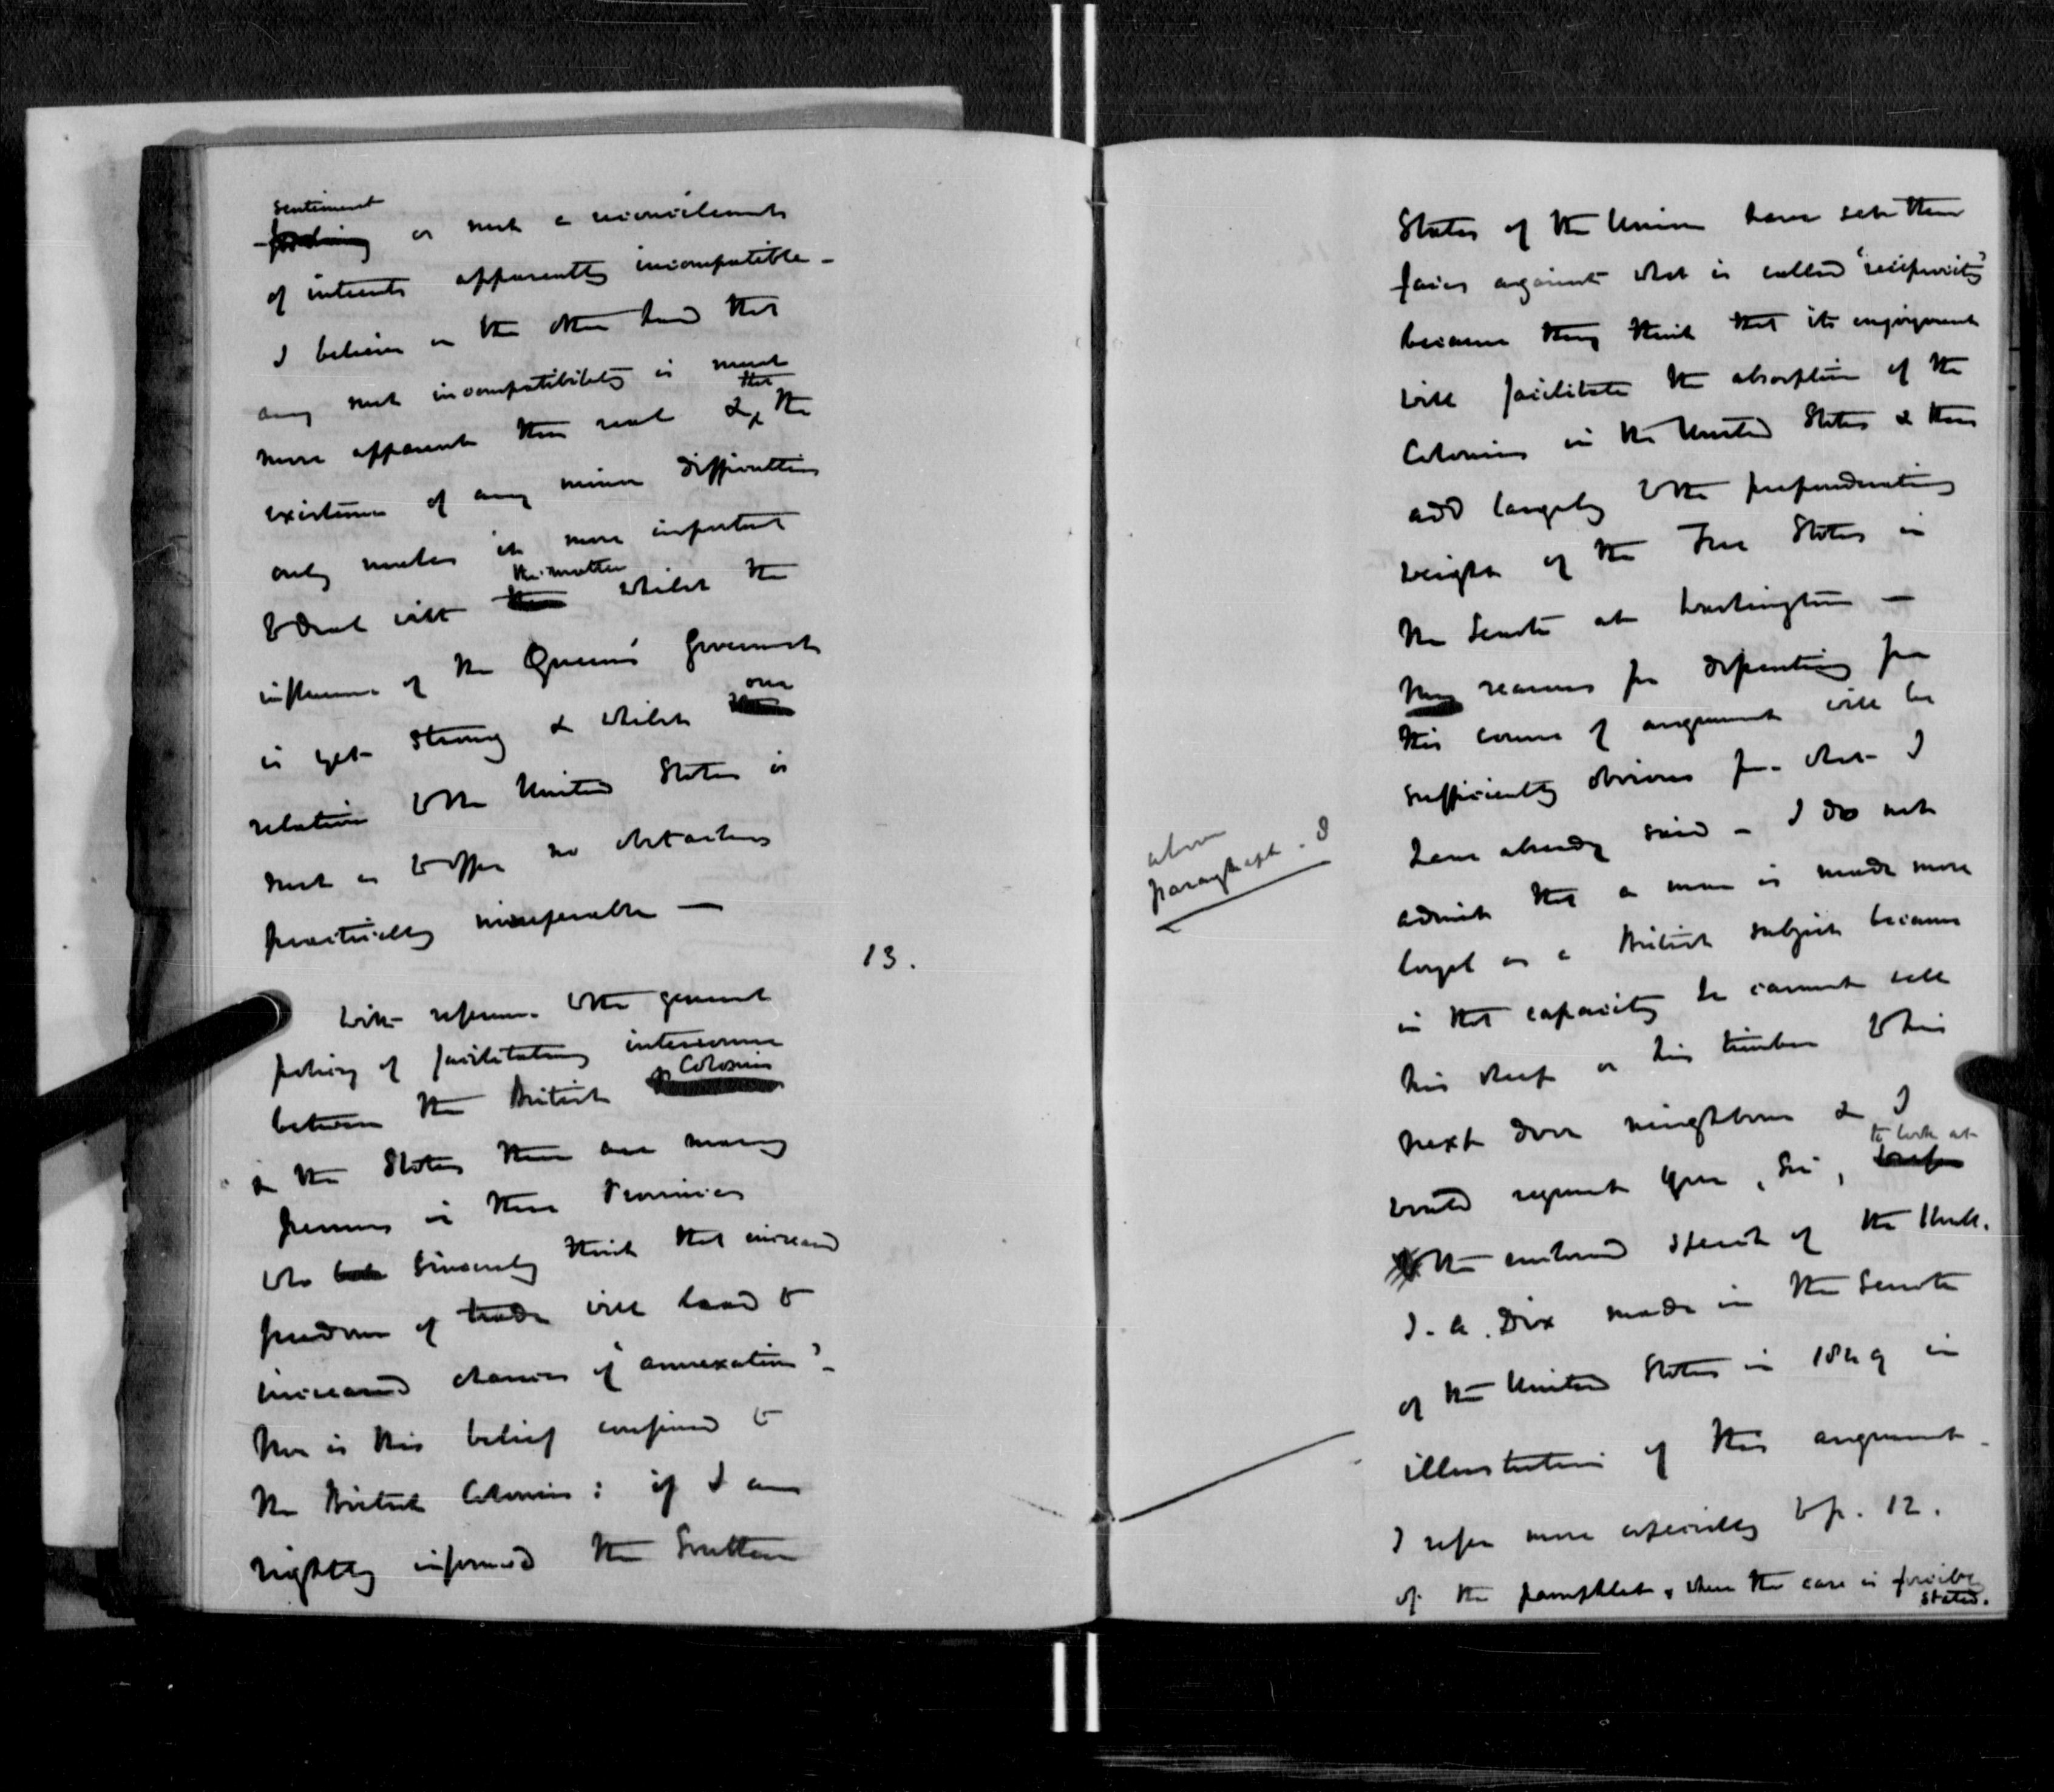 sentiment
feeling or such a reconcilement
of interests apparently incompatible -
I believe on the other hand that
any such incompatibility is much
more apparent than real & that the
existence of any minor difficulties
only makes it more important
to deal with the matter whilst the
influence of the Queen's Government
is yet strong & whilst our
relation to the United States is
such as to offer no obstacles
practically insuperable —
13.
With reference to the general
policy of facilitating intercourse
between the British Colonies
& the States there are many
persons in these Provinces
who sincerely think that increased
freedom of trade will lead to
increased chances of "annexation" -
Nor is this belief confined to
the British Colonies : if I am
rightly informed the Southern
States of the Union have set their
faces against what is called "reciprocity"
because they think that its enjoyment
will facilitate the absorption of the
Colonies in the United States & thus
add largely to the preponderating
weight of the Free States in
the Senate at Washington —
My reasons for dissenting from
this course of argument will be
sufficiently obvious from what I
have already said - I do not
above
paragraph. 8
admit that a man is made more
loyal as a British subject because
in that capacity he cannot sell
his sheep or his timber to his
next door neighbour & I
would request you, Sir, to look at
the enclosed speech of the Honble.
J. A. Dix made in the Senate
of the United States in 1849 in
illustration of this argument -
I refer more especially to p. 12.
of the pamphlet, where the case is forcibly
stated.